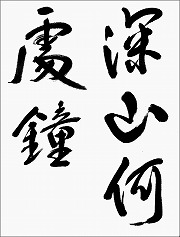 深山何
處鐘